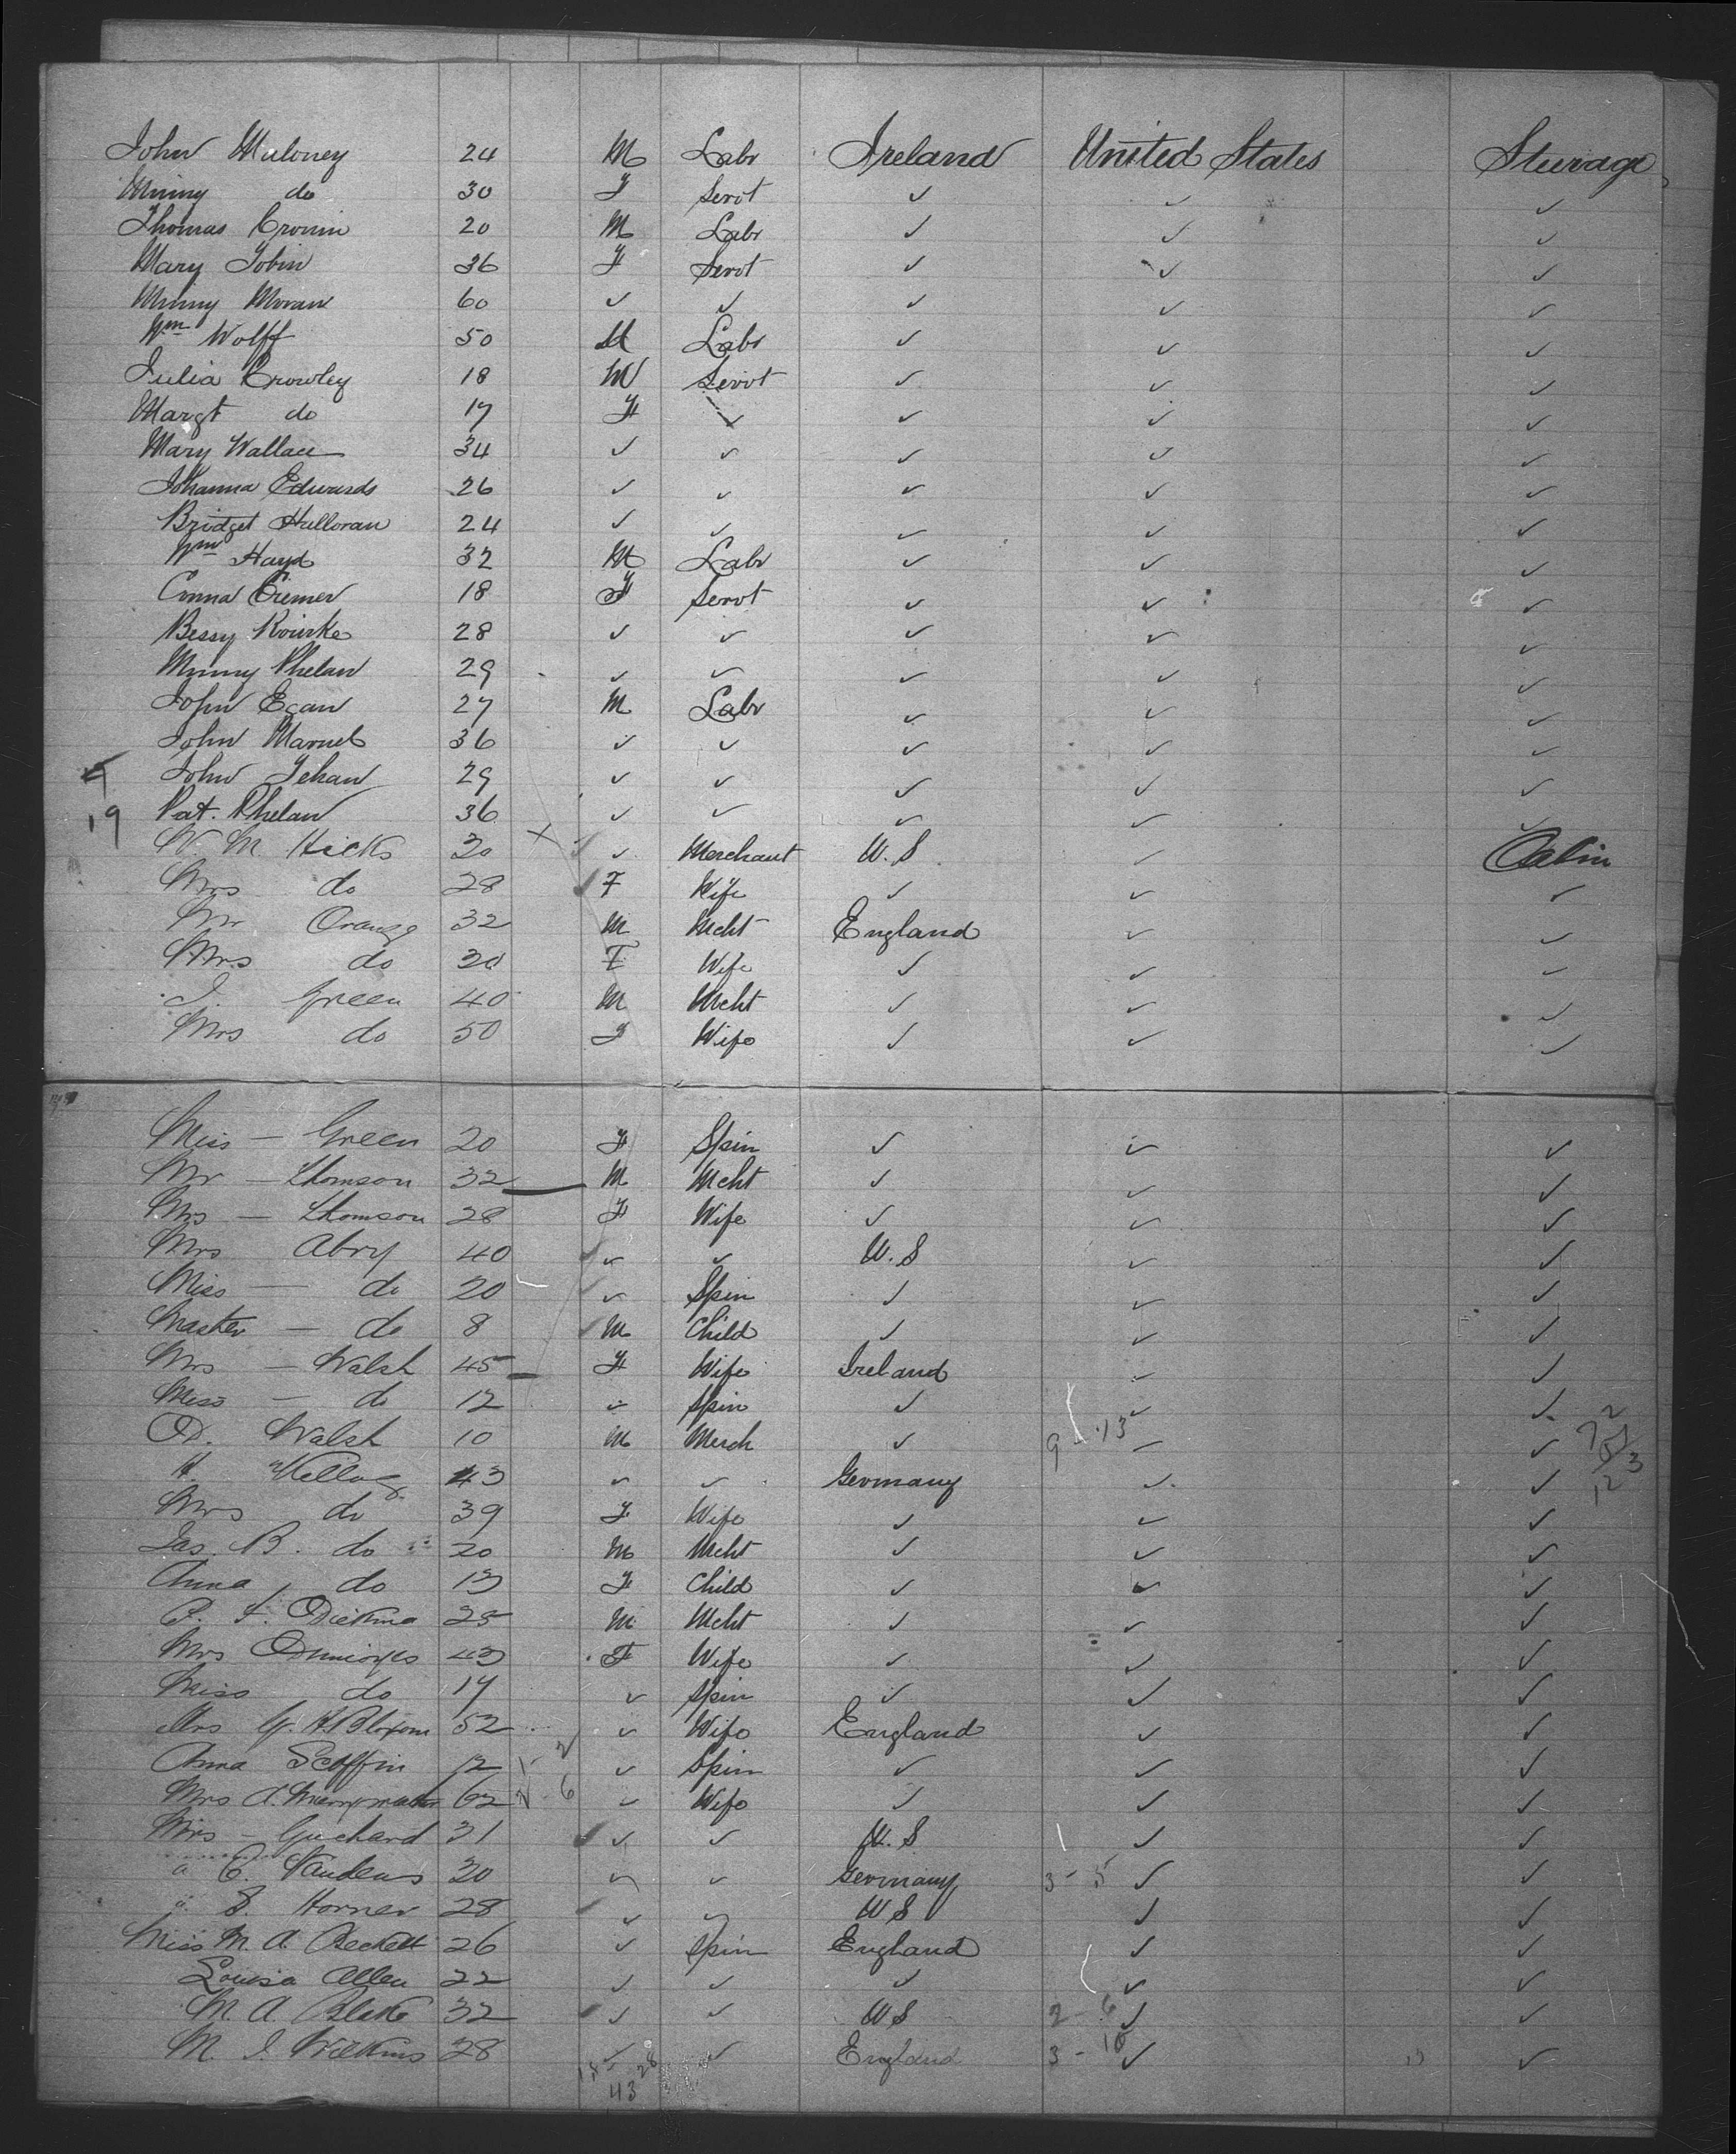 John Maloney 24 M Labr Ireland United States Steerage
Minny do 30 F Servt ✓ ✓ ✓
Thomas Cronin 20 M Labr ✓ ✓ ✓
Mary Tobin 36 F Servt ✓ ✓ ✓
Minny Moran 60 ✓ ✓ ✓ ✓ ✓
Wm Wolff 50 M Labr ✓ ✓ ✓
Julia Crowley 18 M Servt ✓ ✓ ✓
Margt do 17 F ✓ ✓ ✓ ✓
Mary Wallace 34 ✓ ✓ ✓ ✓ ✓
Johanna Edwards 26 ✓ ✓ ✓ ✓ ✓
Bridget Halloran 24 ✓ ✓ ✓ ✓ ✓
Wm Hayd 32 M Labr ✓ ✓ ✓
Cremer 18 F Servt ✓ ✓ ✓
Bessy Rourke 28 ✓ ✓ ✓ ✓ ✓
Minny Phelan 29 ✓ ✓ ✓ ✓ ✓
John Egan 27 M Labr ✓ ✓ ✓
John 36 ✓ ✓ ✓ ✓ ✓
John Tehan 29 ✓ ✓ ✓ ✓ ✓
19 Pat. Phelan 36 ✓ ✓ ✓ ✓ ✓
W. M. Hicks 30 ✓ Merchant U.S ✓ Cabin
Mrs do 28 F Wife ✓ ✓ ✓
Mr Orange 32 M Mcht England ✓ ✓
Mrs do 30 F Wife ✓ ✓ ✓
J. Green 40 M Mcht ✓ ✓ ✓
Mrs do 50 F Wife ✓ ✓ ✓
Miss — Green 20 F Spin ✓ ✓ ✓
Mr — Thomson 32 M Mcht ✓ ✓ ✓
Mrs — Thomson 28 F Wife ✓ ✓ ✓
Mrs Abry 40 ✓ ✓ U.S ✓ ✓
Miss — do 20 ✓ Spin ✓ ✓ ✓
Master — do 8 M Child ✓ ✓ ✓
Mrs — Walsh 45 F Wife Ireland ✓ ✓
Miss — do 12 ✓ Spin ✓ ✓ ✓
D. Walsh 10 M Merch ✓ 9 - 13 ✓ ✓
H. Kellog 43 ✓ ✓ Germany ✓ ✓
Mrs do 39 F Wife ✓ ✓ ✓
Jas. B. do 20 M Mcht ✓ ✓ ✓
Anna do 13 F Child ✓ ✓ ✓
25 M Mcht ✓ ✓ ✓
Mrs 43 F Wife ✓ ✓ ✓
Miss do 17 ✓ Spin ✓ ✓ ✓
Mrs G. H. Bloxom 52 ✓ Wife England ✓ ✓
Anna Scoffin 12 ✓ Spin ✓ ✓ ✓
Mrs A. Merrymather 62 ✓ Wife ✓ ✓ ✓
Mrs — Guchard 31 ✓ ✓ U.S ✓ ✓
" C. 30 ✓ ✓ Germany 3 - 5 ✓ ✓
" S. Horner 28 ✓ ✓ U S ✓ ✓
Miss M. A. Beckett 26 ✓ Spin England ✓ ✓
Louisa Allen 22 ✓ ✓ ✓ ✓ ✓
M. A. Blake 32 ✓ ✓ U S 2 - 6 ✓ ✓
M. J. Wilkins 28 ✓ ✓ England 3 - 10 ✓ ✓
43